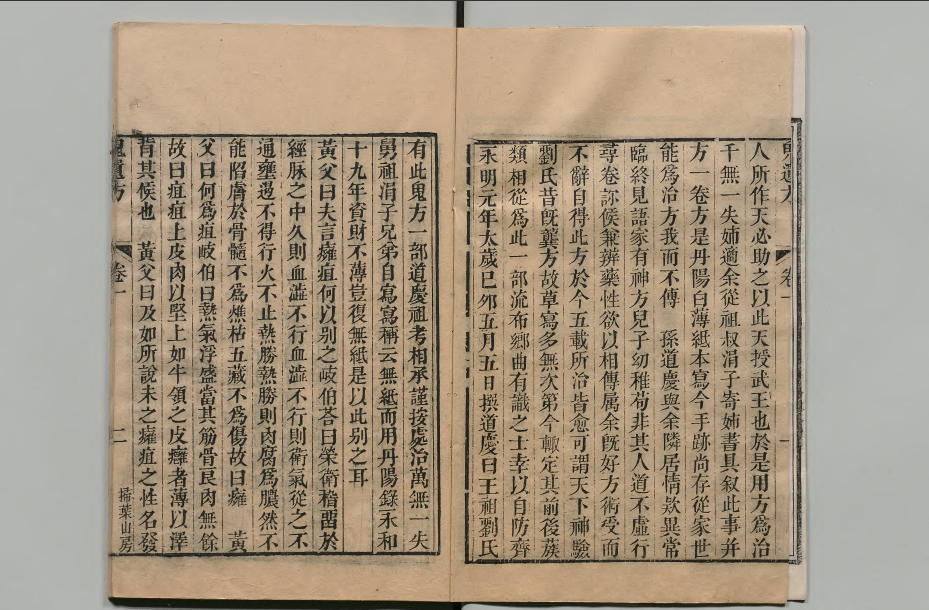 人所作天必助之以此天授武王也於是用方為治
千無一失姉適余從祖叔涓子寄姉書具叙此事并
方一卷方是丹陽白薄紙本寫今手跡尚存從家世
能為治方我而不傳　孫道慶與余隣居情欵異常
臨終見語家有神方兒子幼稚苟非其人道不虛行
尋卷診候兼辨藥性欲以相傳属余旣好方術受而
不辭自得此方於今五載所治皆愈可謂天下神驗
劉氏昔旣龔方故草寫多無次第今輙定其前後蔟
類相從爲此一部流布鄉曲有識之士幸以自防齊
永明元年太歲巳夘五月五日撰道慶曰王祖劉氏
鬼遺方
卷一
一
有此鬼方一部道慶祖考相承謹按處治萬無一失
舅祖涓子兄弟自寫寫稱云無紙而用丹陽錄永和
十九年資財不薄豈復無紙是以此别之耳
黃父曰夫言癰疽何以别之岐伯荅曰榮衛稽畱於
經脉之中久則血澁不行血澁不行則衛氣從之不
通壅遏不得行火不止熱勝熱勝則肉腐爲膿然不
能陷膚於骨髓不爲燋枯五藏不爲傷故曰癰　黃
父曰何爲疽岐伯曰熱氣浮盛當其筋骨良肉無餘
故曰疽疽上皮肉以堅上如牛領之皮癰者薄以澤
背其候也　黃父曰及如所說未之癰疽之性名發
鬼遺方
卷一
二
掃葉山房